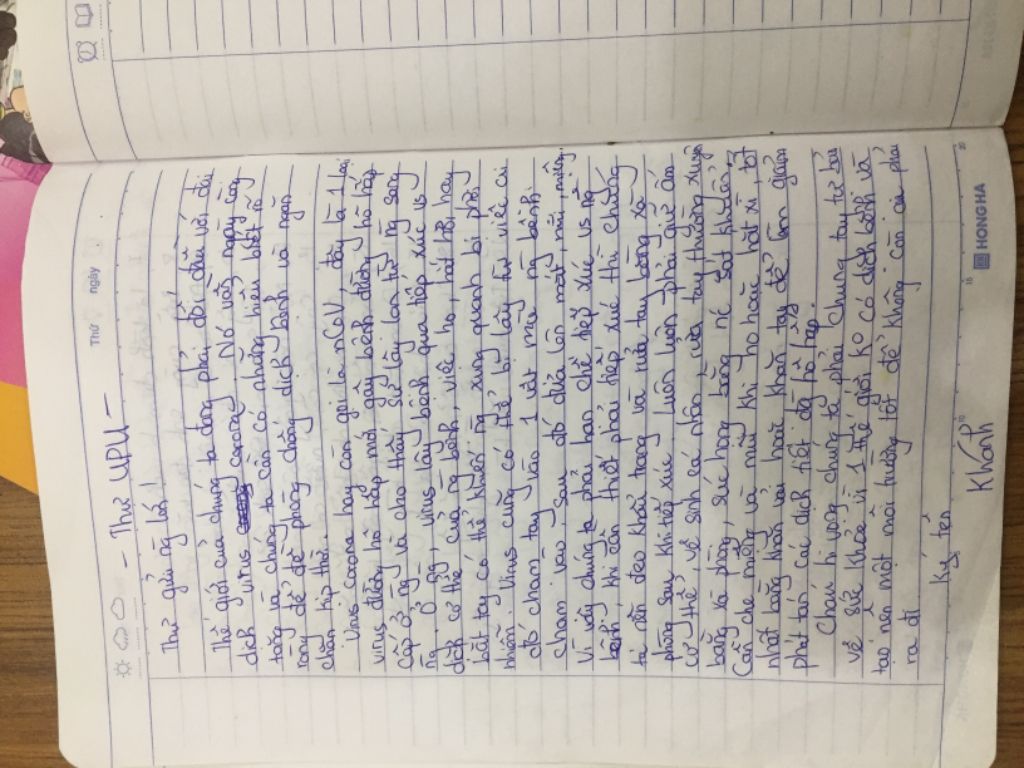 Thứ ngày
- Thư UPU -
Thư gửi ng lớn!
Thế giới của chúng ta đang phải đối đầu với đại
dịch virus corona. Nó vẫn ngày càng
tăng và chúng ta cần có những hiểu biết rõ
ràng để đề phòng chống dịch bệnh và ngăn
chặn kịp thời.
Virus corona hay còn gọi là nCoV, đây là 1 loại
virus đường hô hấp mới gây bệnh đường hô hấp
cấp ở ng và cho thấy sự lây lan từ ng sang
ng. Ở ng, virus lây bệnh qua tiếp xúc vs
dịch cơ thể của ng bệnh, việc ho, hắt hơi hay
bắt tay có thể khiến ng xung quanh bị phơi
nhiễm. Virus cũng có thể bị lây từ việc ai
đó chạm tay vào 1 vật mà ng bệnh
chạm vào, sau đó đưa lên mắt, mũi, miệng.
Vì vậy chúng ta phải hạn chế tiếp xúc vs ng
bệnh, khi cần thiết phải tiếp xúc thì chúng
ta nên đeo khẩu trang và rửa tay bằng xà
phòng sau khi tiếp xúc. Luôn luôn phải giữ ấm
cơ thể, vệ sinh cá nhân, rửa tay thường xuyên
bằng xà phòng, súc họng bằng nc sát khuẩn.
Cần che miệng và mũi khi ho hoặc hắt xì, tốt
nhất bằng khăn vải hoặc khăn tay để làm giảm
phát tán các dịch tiết đg hô hấp.
Cháu hi vọng chúng ta phải chung tay tự bảo
vệ sức khỏe vì 1 thế giới ko có dịch bệnh và
tạo nên một môi trường tốt để không còn ai phải
ra đi
Ký tên
Khánh
HONG HA